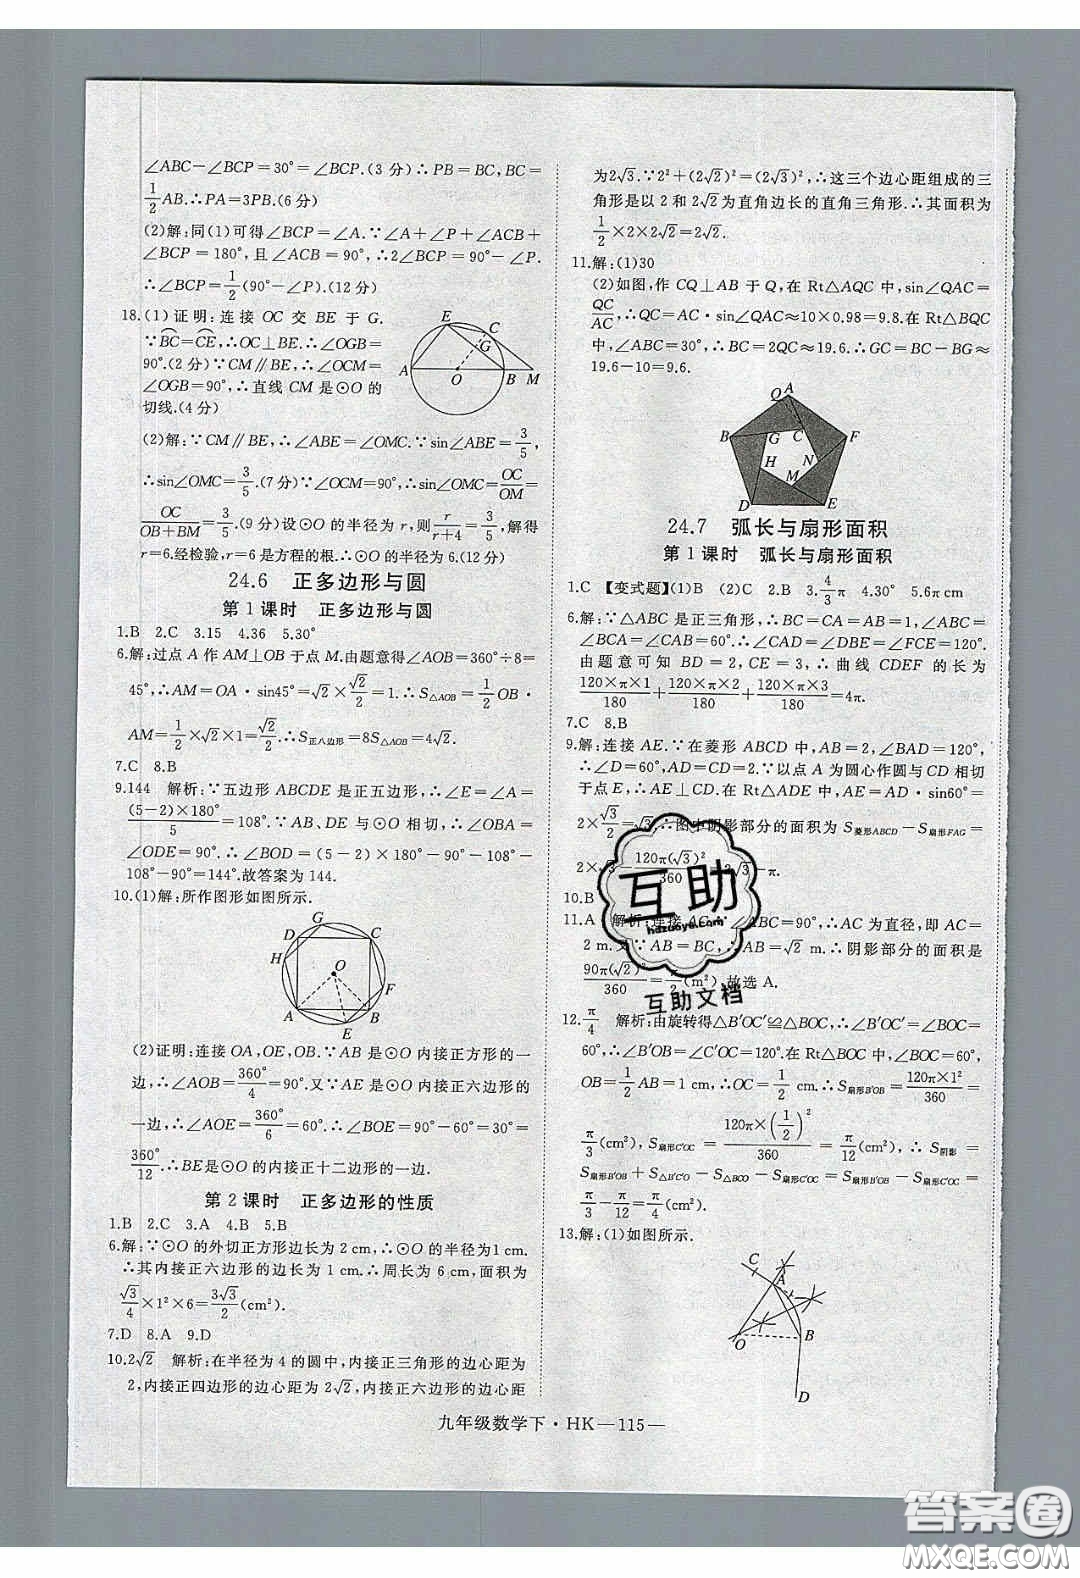 ∠ABC－∠BCP＝30°＝∠BCP.(3 分)∴PB＝BC,BC＝
1/2 AB.∴PA＝3PB.(6分)
(2)解:同(1)可得∠BCP＝∠A.∵∠A＋∠P＋∠ACB＋
∠BCP＝180°,且∠ACB＝90°,∴2∠BCP＝90°－∠P.
∴∠BCP＝1/2(90°－∠P).(12分)
18.(1)证明:连接 OC 交 BE 于 G.
∵BC＝CE,∴OC⊥BE.∴∠OGB＝
90°.(2分)∵CM∥BE,∴∠OCM＝
∠OGB＝90°,∴直线 CM 是⊙O 的
切线.(4分)
E C G A O B M
(2)解:∵CM∥BE,∴∠ABE＝∠OMC.∵sin∠ABE＝3/5,
∴sin∠OMC＝3/5.(7分)∵∠OCM＝90°,∴sin∠OMC＝OC/OM＝
OC/(OB＋BM)＝3/5.(9分)设⊙O的半径为r,则r/(r＋4)＝3/5,解得
r＝6.经检验,r＝6是方程的根.∴⊙O的半径为6.(12分)
24.6　正多边形与圆
第1课时　正多边形与圆
1.B　2.C　3.15　4.36　5.30°
6.解:过点A作AM⊥OB于点M.由题意得∠AOB＝360°÷8＝
45°,∴AM＝OA·sin45°＝√2×√2/2＝1.∴S△AOB＝1/2 OB·
AM＝1/2×√2×1＝√2/2.∴S正八边形＝8S△AOB＝4√2.
7.C　8.B
9.144　解析:∵五边形ABCDE是正五边形,∴∠E＝∠A＝
(5－2)×180°/5＝108°.∵AB、DE与⊙O相切,∴∠OBA＝
∠ODE＝90°.∴∠BOD＝(5－2)×180°－90°－108°－
108°－90°＝144°.故答案为144.
10.(1)解:所作图形如图所示.
G D C H O F A B E
(2)证明:连接OA,OE,OB.∵AB是⊙O内接正方形的一
边,∴∠AOB＝360°/4＝90°.又∵AE是⊙O内接正六边形的
一边,∴∠AOE＝360°/6＝60°.∴∠BOE＝90°－60°＝30°＝
360°/12.∴BE是⊙O的内接正十二边形的一边.
第2课时　正多边形的性质
1.B　2.C　3.A　4.B　5.B
6.解:∵⊙O的外切正方形边长为2 cm,∴⊙O的半径为1 cm.
∴其内接正六边形的边长为1 cm.∴周长为6 cm,面积为
√3/4×1²×6＝3√3/2(cm²).
7.D　8.A　9.D
10.2√2　解析:在半径为4的圆中,内接正三角形的边心距为
2,内接正四边形的边心距为2√2,内接正六边形的边心距
为2√3.∵2²＋(2√2)²＝(2√3)²,∴这三个边心距组成的三
角形是以2和2√2为直角边长的直角三角形.∴其面积为
1/2×2×2√2＝2√2.
11.解:(1)30
(2)如图,作CQ⊥AB于Q,在Rt△AQC中,sin∠QAC＝
QC/AC,∴QC＝AC·sin∠QAC≈10×0.98＝9.8.在Rt△BQC
中,∠ABC＝30°,∴BC＝2QC≈19.6.∴GC＝BC－BG≈
19.6－10＝9.6.
Q A B G C F H N M D E
24.7　弧长与扇形面积
第1课时　弧长与扇形面积
1.C　【变式题】(1)B　(2)C　2.B　3.4/3π　4.30°　5.6π cm
6.解:∵△ABC是正三角形,∴BC＝CA＝AB＝1,∠ABC＝
∠BCA＝∠CAB＝60°.∴∠CAD＝∠DBE＝∠FCE＝120°.
由题意可知BD＝2,CE＝3,∴曲线CDEF的长为
120×π×1/180＋120×π×2/180＋120×π×3/180＝4π.
7.C　8.B
9.解:连接AE.∵在菱形ABCD中,AB＝2,∠BAD＝120°,
∴∠D＝60°,AD＝CD＝2.∵以点A为圆心作圆与CD相切
于点E,∴AE⊥CD.在Rt△ADE中,AE＝AD·sin60°＝
2×√3/2＝√3.∴图中阴影部分的面积为S菱形ABCD－S扇形FAG＝
2×√3－120π(√3)²/360＝2√3－π.
10.B
11.A　解析:连接AC.∵∠ABC＝90°,∴AC为直径,即AC＝
2 m.又∵AB＝BC,∴AB＝√2 m.∴阴影部分的面积是
90π(√2)²/360＝π/2(m²).故选A.
12.π/4　解析:由旋转得△B′OC′≌△BOC,∴∠B′OC′＝∠BOC＝
60°,∴∠B′OB＝∠C′OC＝120°.在Rt△BOC中,∠BOC＝60°,
OB＝1/2 AB＝1 cm,∴OC＝1/2 cm.∴S扇形B′OB＝120π×1²/360＝
π/3(cm²),S扇形C′OC＝120π×(1/2)²/360＝π/12(cm²),∴S阴影＝
S扇形B′OB＋S△B′C′O－S△BCO－S扇形C′OC＝S扇形B′OB－S扇形C′OC＝
π/3－π/12＝π/4(cm²).
13.解:(1)如图所示.
C A O B D
九年级数学下·HK—115—
互助
hzzuoye.com
互助文档
答案圈
MXQE.COM